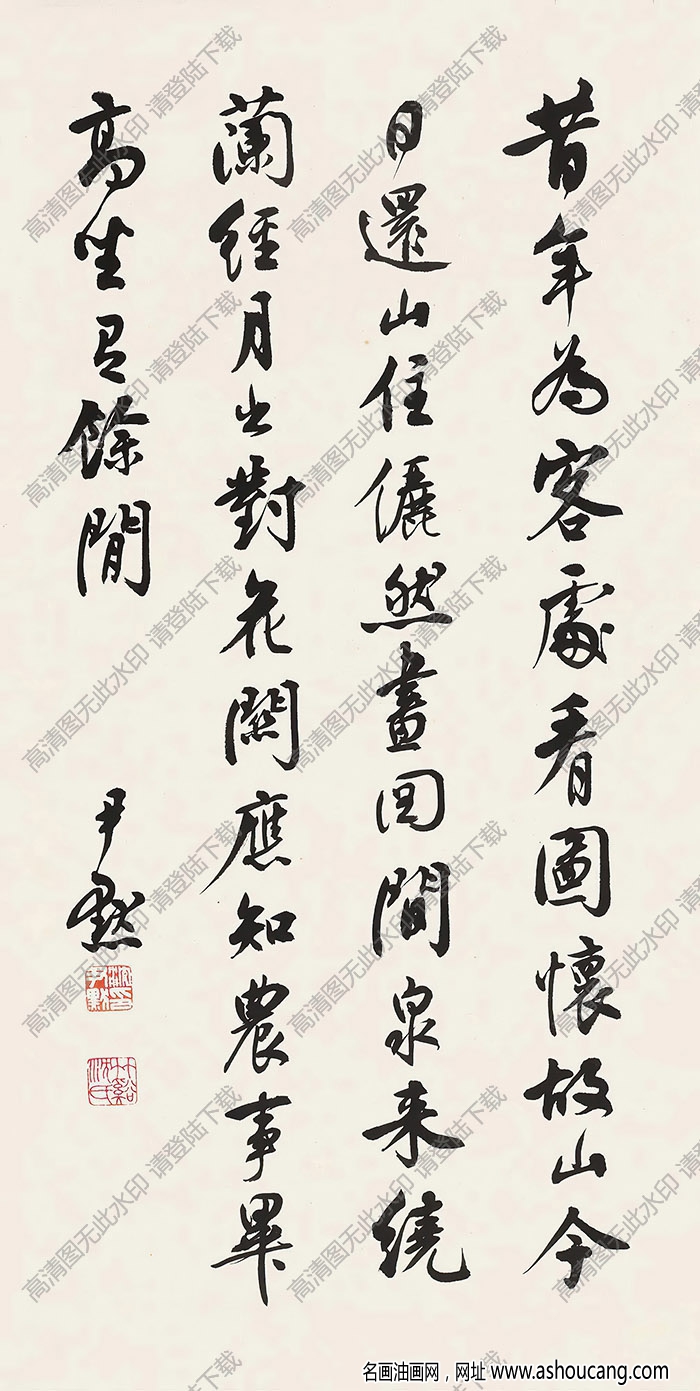 昔年為客處看圖懷故山今
日還山住儼然畫図間泉来繞
蘭經月出對花關應知農事畢
高坐有餘閒
尹默
沈尹默印
竹谿沈氏
高清图无此水印 请登陆下载
名画油画网，网址 www.ashoucang.com